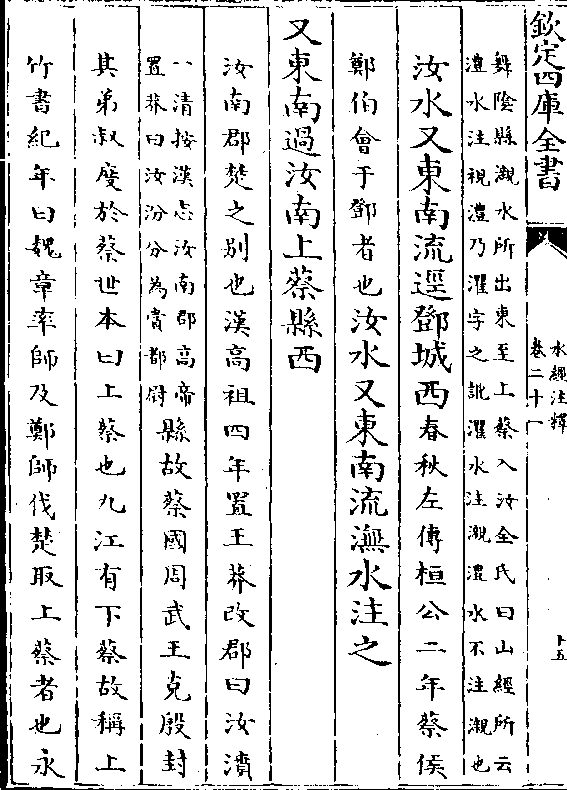 欽定四庫全書
水經注釋
卷二十一
十五
舞陰縣瀙水所出東至上蔡入汝全氏曰山經所云
澧水注視澧乃濯字之訛濯水注瀙澧水不注瀙也
汝水又東南流逕鄧城西春秋左傳桓公二年蔡侯
鄭伯會于鄧者也汝水又東南流潕水注之
又東南過汝南上蔡縣西
汝南郡楚之别也漢高祖四年置王莽改郡曰汝濆
一清按漢志汝南郡高帝
置莽曰汝汾分為賞都尉
縣故蔡國周武王克殷封
其弟叔度於蔡世本曰上蔡也九江有下蔡故稱上
竹書紀年曰魏章率師及鄭師伐楚取上蔡者也永